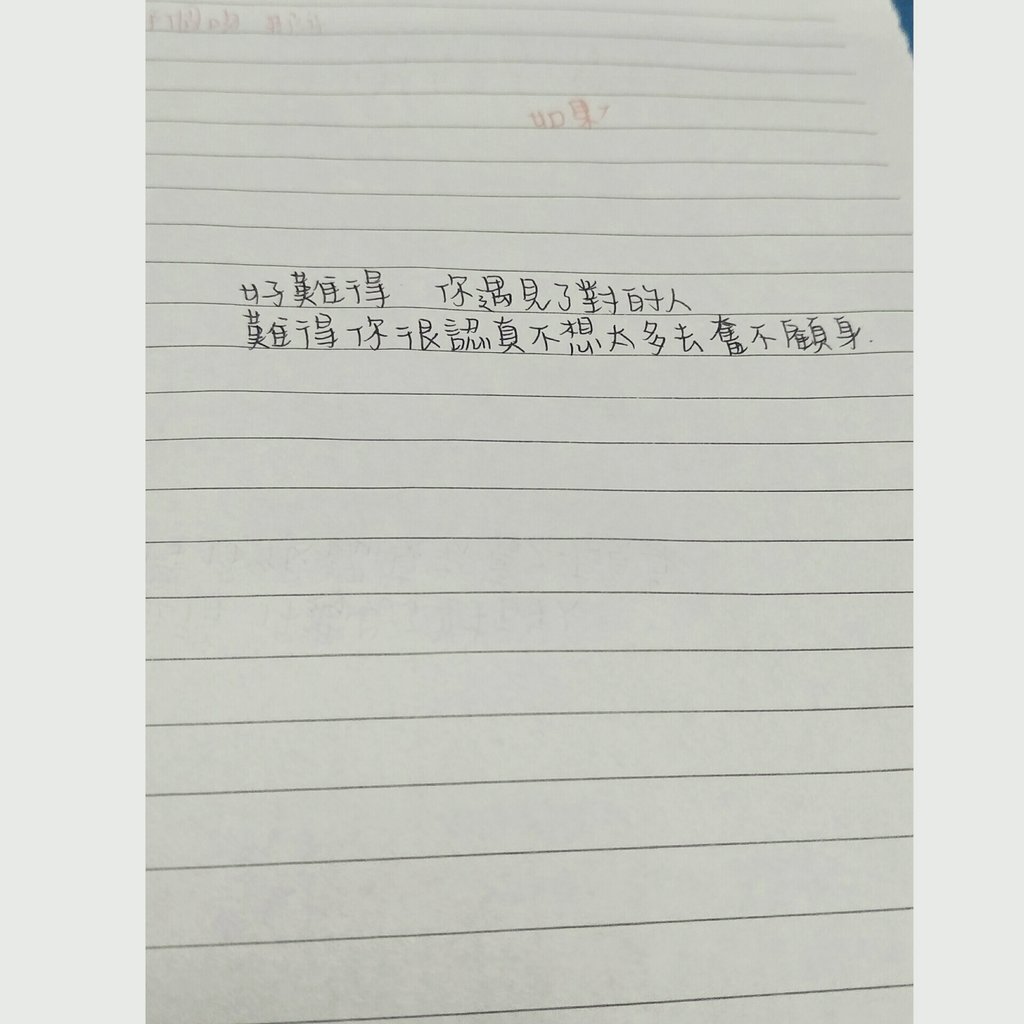 如果
好難得 你遇見了對的人
難得你很認真不想太多去奮不顧身.